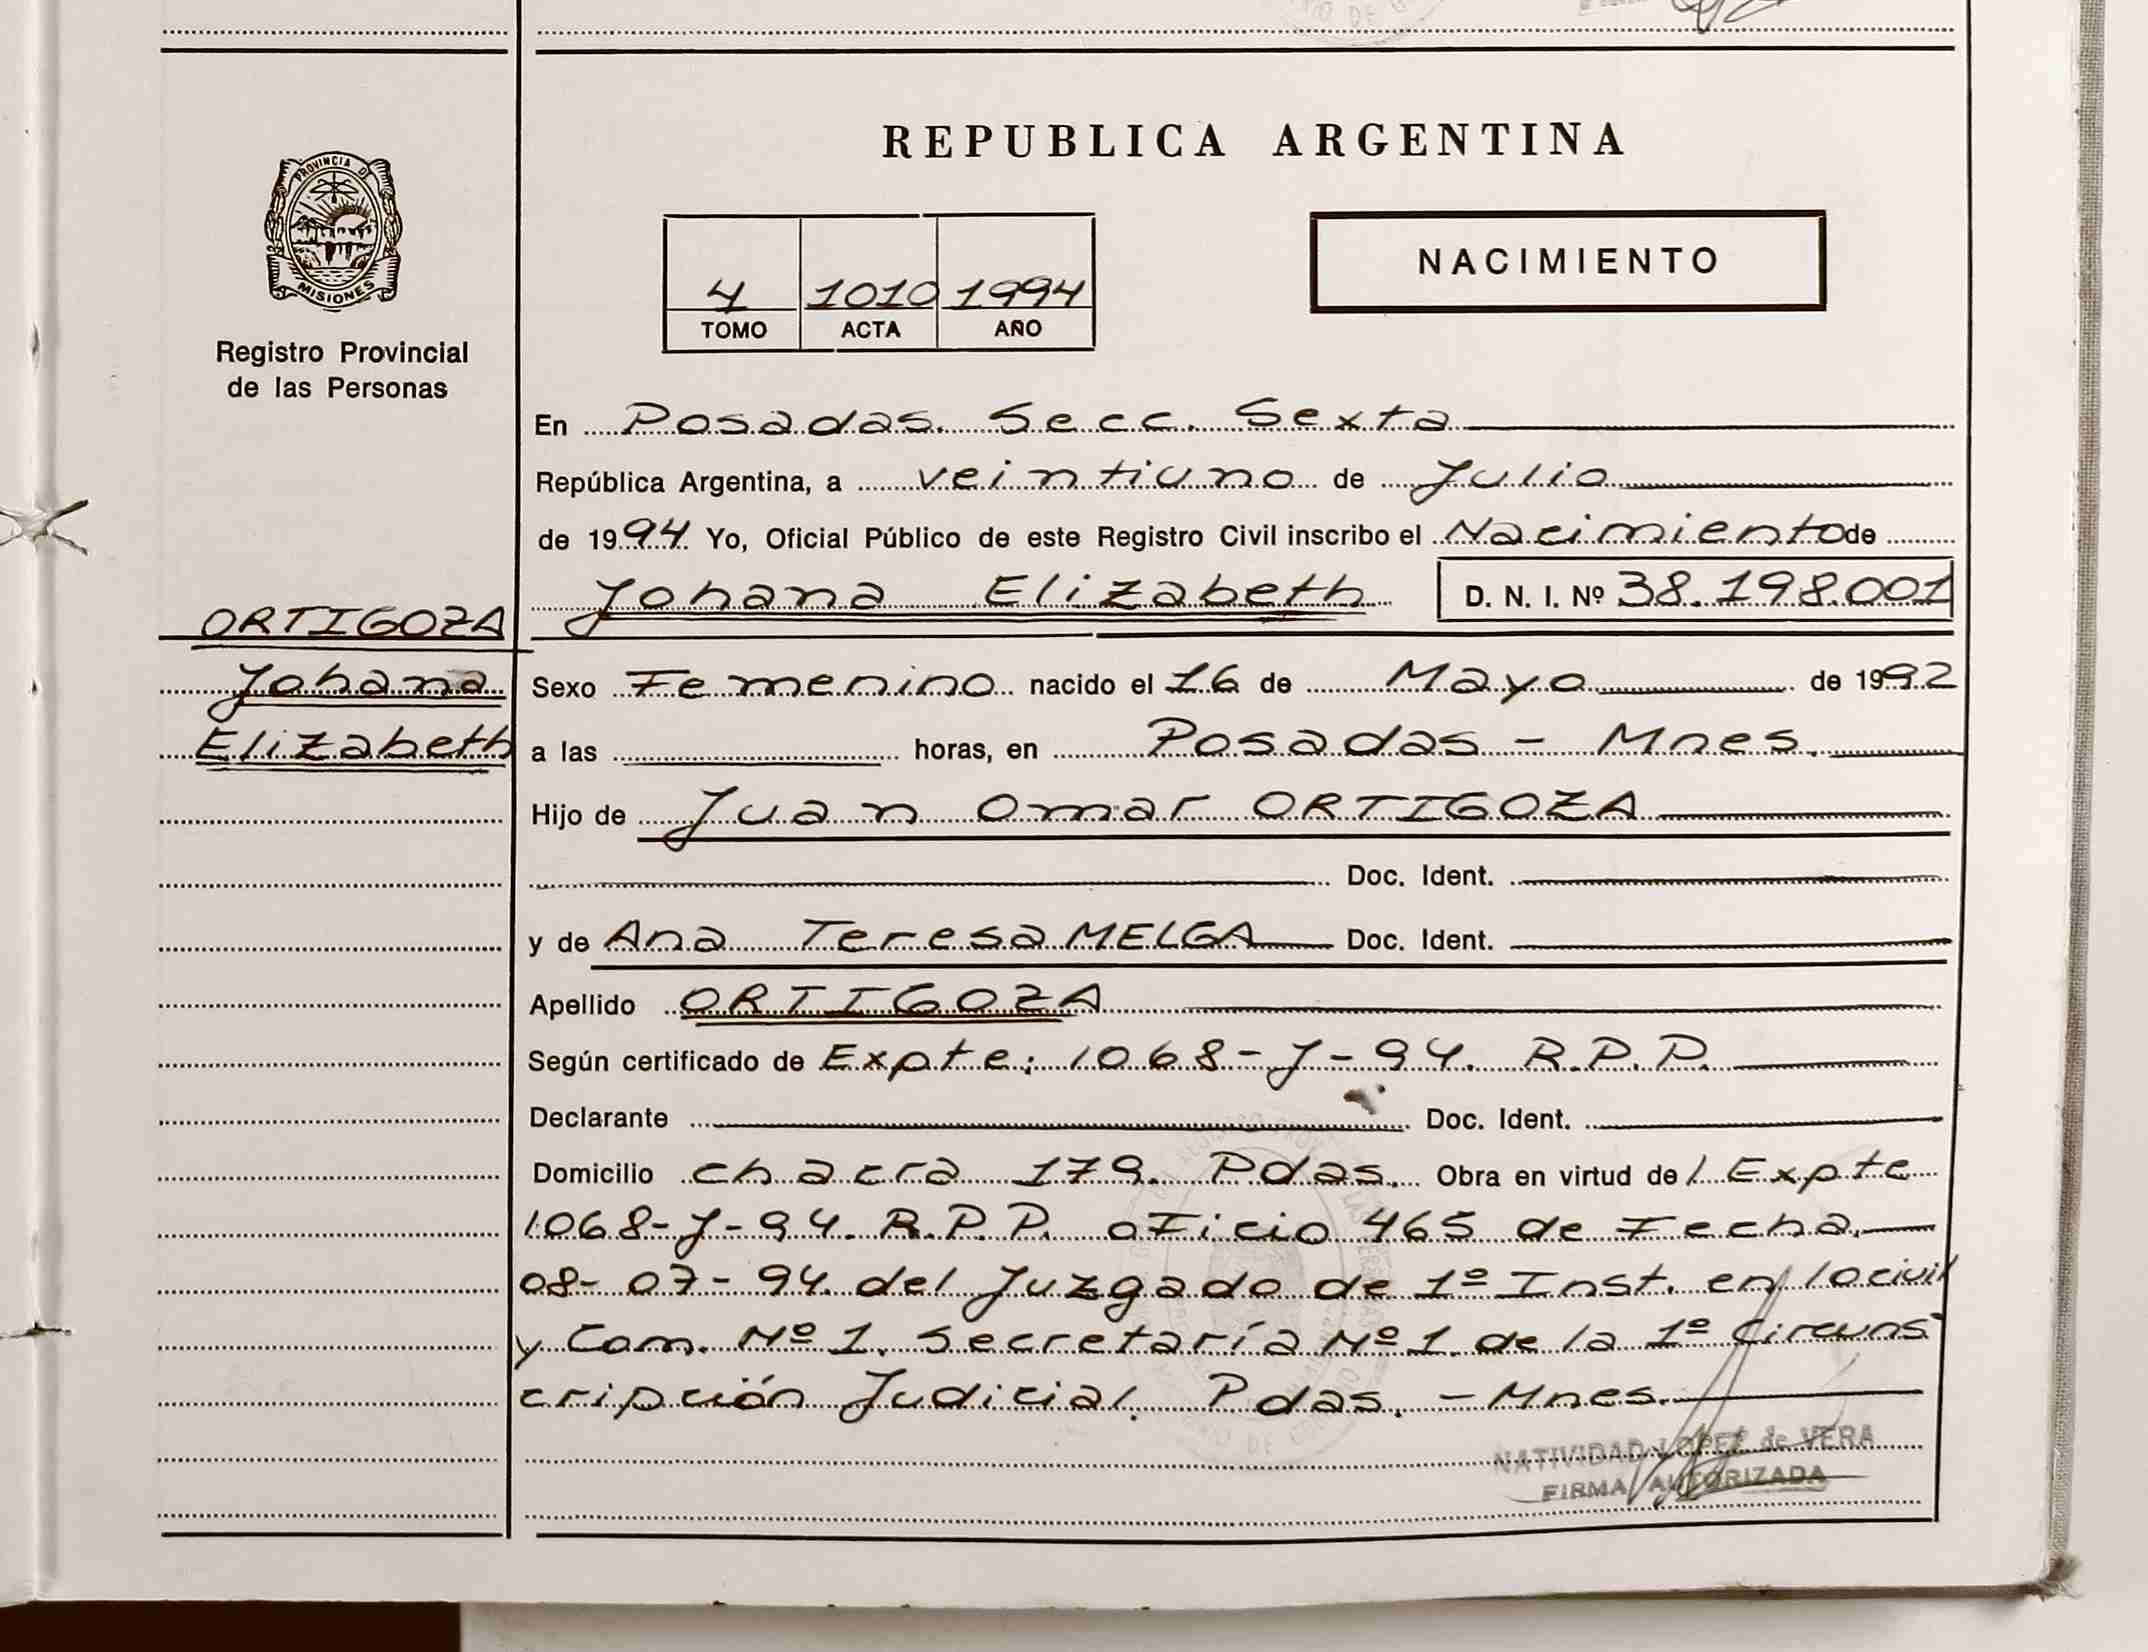 REPUBLICA ARGENTINA
PROVINCIA DE
MISIONES
Registro Provincial
de las Personas
NACIMIENTO
4 1010 1994
TOMO ACTA AÑO
En Posadas. Secc. Sexta
República Argentina, a veintiuno de Julio
de 1994 Yo, Oficial Público de este Registro Civil inscribo el Nacimiento de
Johana Elizabeth D. N. I. Nº 38.198.001
ORTIGOZA
Johana
Elizabeth
Sexo Femenino nacido el 16 de Mayo de 1992
a las horas, en Posadas - Mnes.
Hijo de Juan Omar ORTIGOZA
Doc. Ident.
y de Ana Teresa MELGA Doc. Ident.
Apellido ORTIGOZA
Según certificado de Expte: 1068-J-94. R.P.P.
Declarante Doc. Ident.
Domicilio chacra 179. Pdas. Obra en virtud de / Expte
1068-J-94. R.P.P. oficio 465 de Fecha.
08-07-94. del Juzgado de 1º Inst. en lo civil
y Com. Nº 1. Secretaría Nº 1. de la 1º Circuns
cripción Judicial. Pdas. - Mnes.
NATIVIDAD LOPEZ de VERA
FIRMA AUTORIZADA